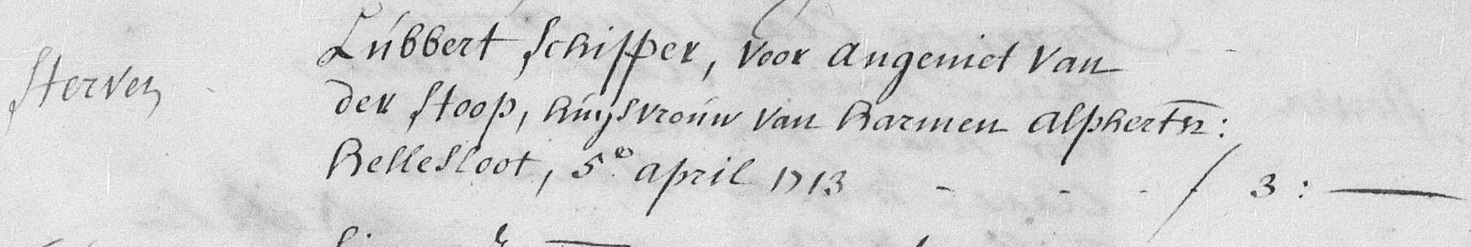 Sterven
Lúbbert Schipper, voor Angeniet van
der Stoop, huijsvroúw van harmen alphertsz:
hellesloot, 5e april 1713 - - - / 3:—